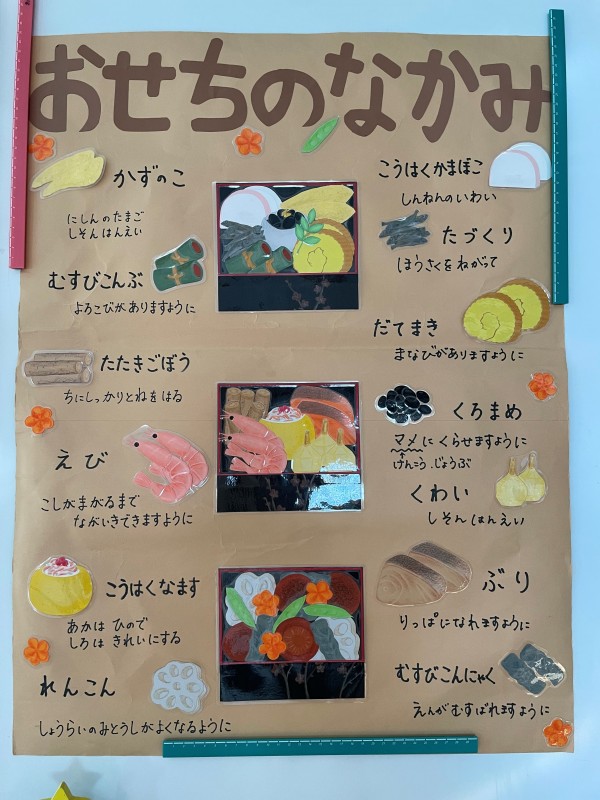 おせちのなかみ
かずのこ
にしんのたまご
しそんはんえい
むすびこんぶ
よろこびがありますように
たたきごぼう
ちにしっかりとねをはる
えび
こしがまがるまで
ながいきできますように
こうはくなます
あかは ひので
しろは きれいにする
れんこん
しょうらいのみとうしがよくなるように
こうはくかまぼこ
しんねんのいわい
たづくり
ほうさくをねがって
だてまき
まなびがありますように
くろまめ
マメにくらせますように
けんこう.じょうぶ
くわい
しそんはんえい
ぶり
りっぱになれますように
むすびこんにゃく
えんがむすばれますように